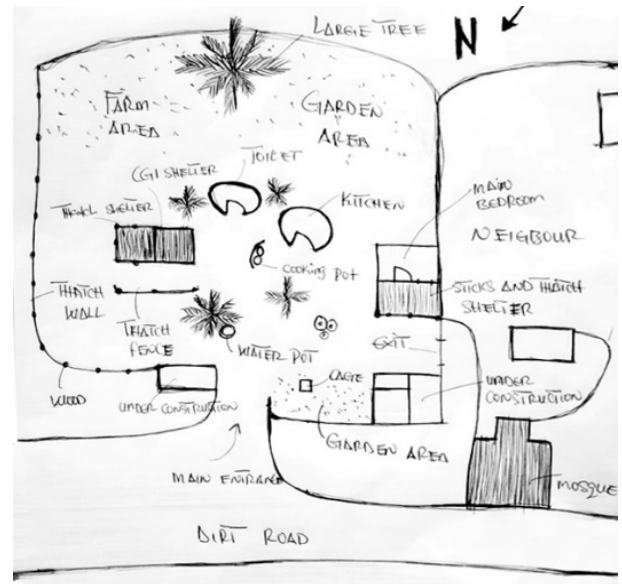 LARGE TREE
N
FARM
AREA
GARDEN
AREA
TOILET
CGI SHELTER
SHELTER
KITCHEN
MAIN
BEDROOM
NEIGBOUR
COOKING POT
STICKS AND THATCH
SHELTER
THATCH
WALL
THATCH
FENCE
WATER POT
EXIT
WOOD
UNDER CONSTRUCTION
CAGE
UNDER
CONSTRUCTION
GARDEN AREA
MAIN
MOSQUE
DIRT ROAD